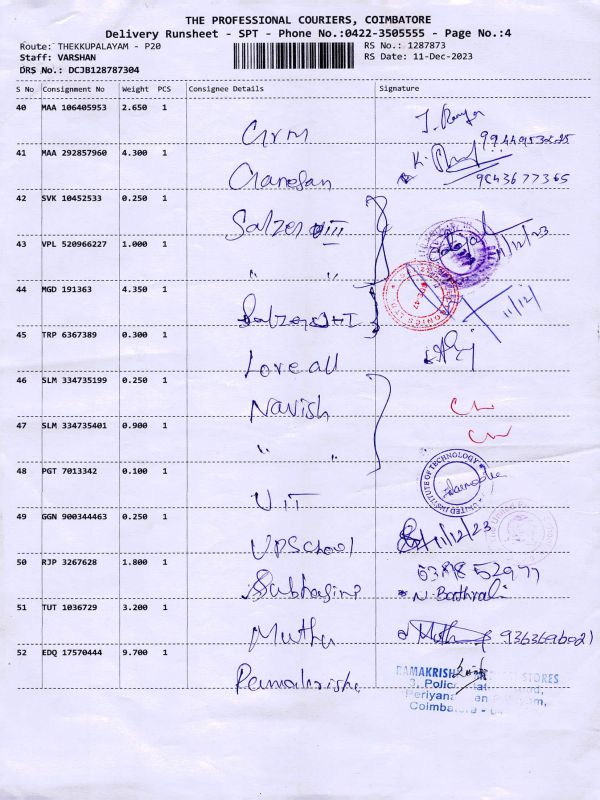 THE PROFESSIONAL COURIERS, COIMBATORE
Delivery Runsheet - SPT - Phone No.:0422-3505555 - Page No.:4
Route: THEKKUPALAYAM - P20 RS No.: 1287873
Staff: VARSHAN RS Date: 11-Dec-2023
DRS No.: DCJB128787304
S No Consignment No Weight PCS Consignee Details Signature
40 MAA 106405953 2.650 1
41 MAA 292857960 4.300 1
Ganesan 9843677365
42 SVK 10452533 0.250 1
Salzer III 11/12/23
43 VPL 520966227 1.000 1
" "
44 MGD 191363 4.350 1
11/12/
45 TRP 6367389 0.300 1
Love all
46 SLM 334735199 0.250 1
Navish
47 SLM 334735401 0.900 1
" "
48 PGT 7013342 0.100 1
UIT UNITED INSTITUTE OF TECHNOLOGY
49 GGN 900344463 0.250 1
UPSchool 11/12/23
50 RJP 3267628 1.800 1
Subhasini
51 TUT 1036729 3.200 1
Muthu
52 EDQ 17570444 9.700 1
Ramakrishn
RAMAKRISH STORES
3, Polic
Periyana
Coimbato